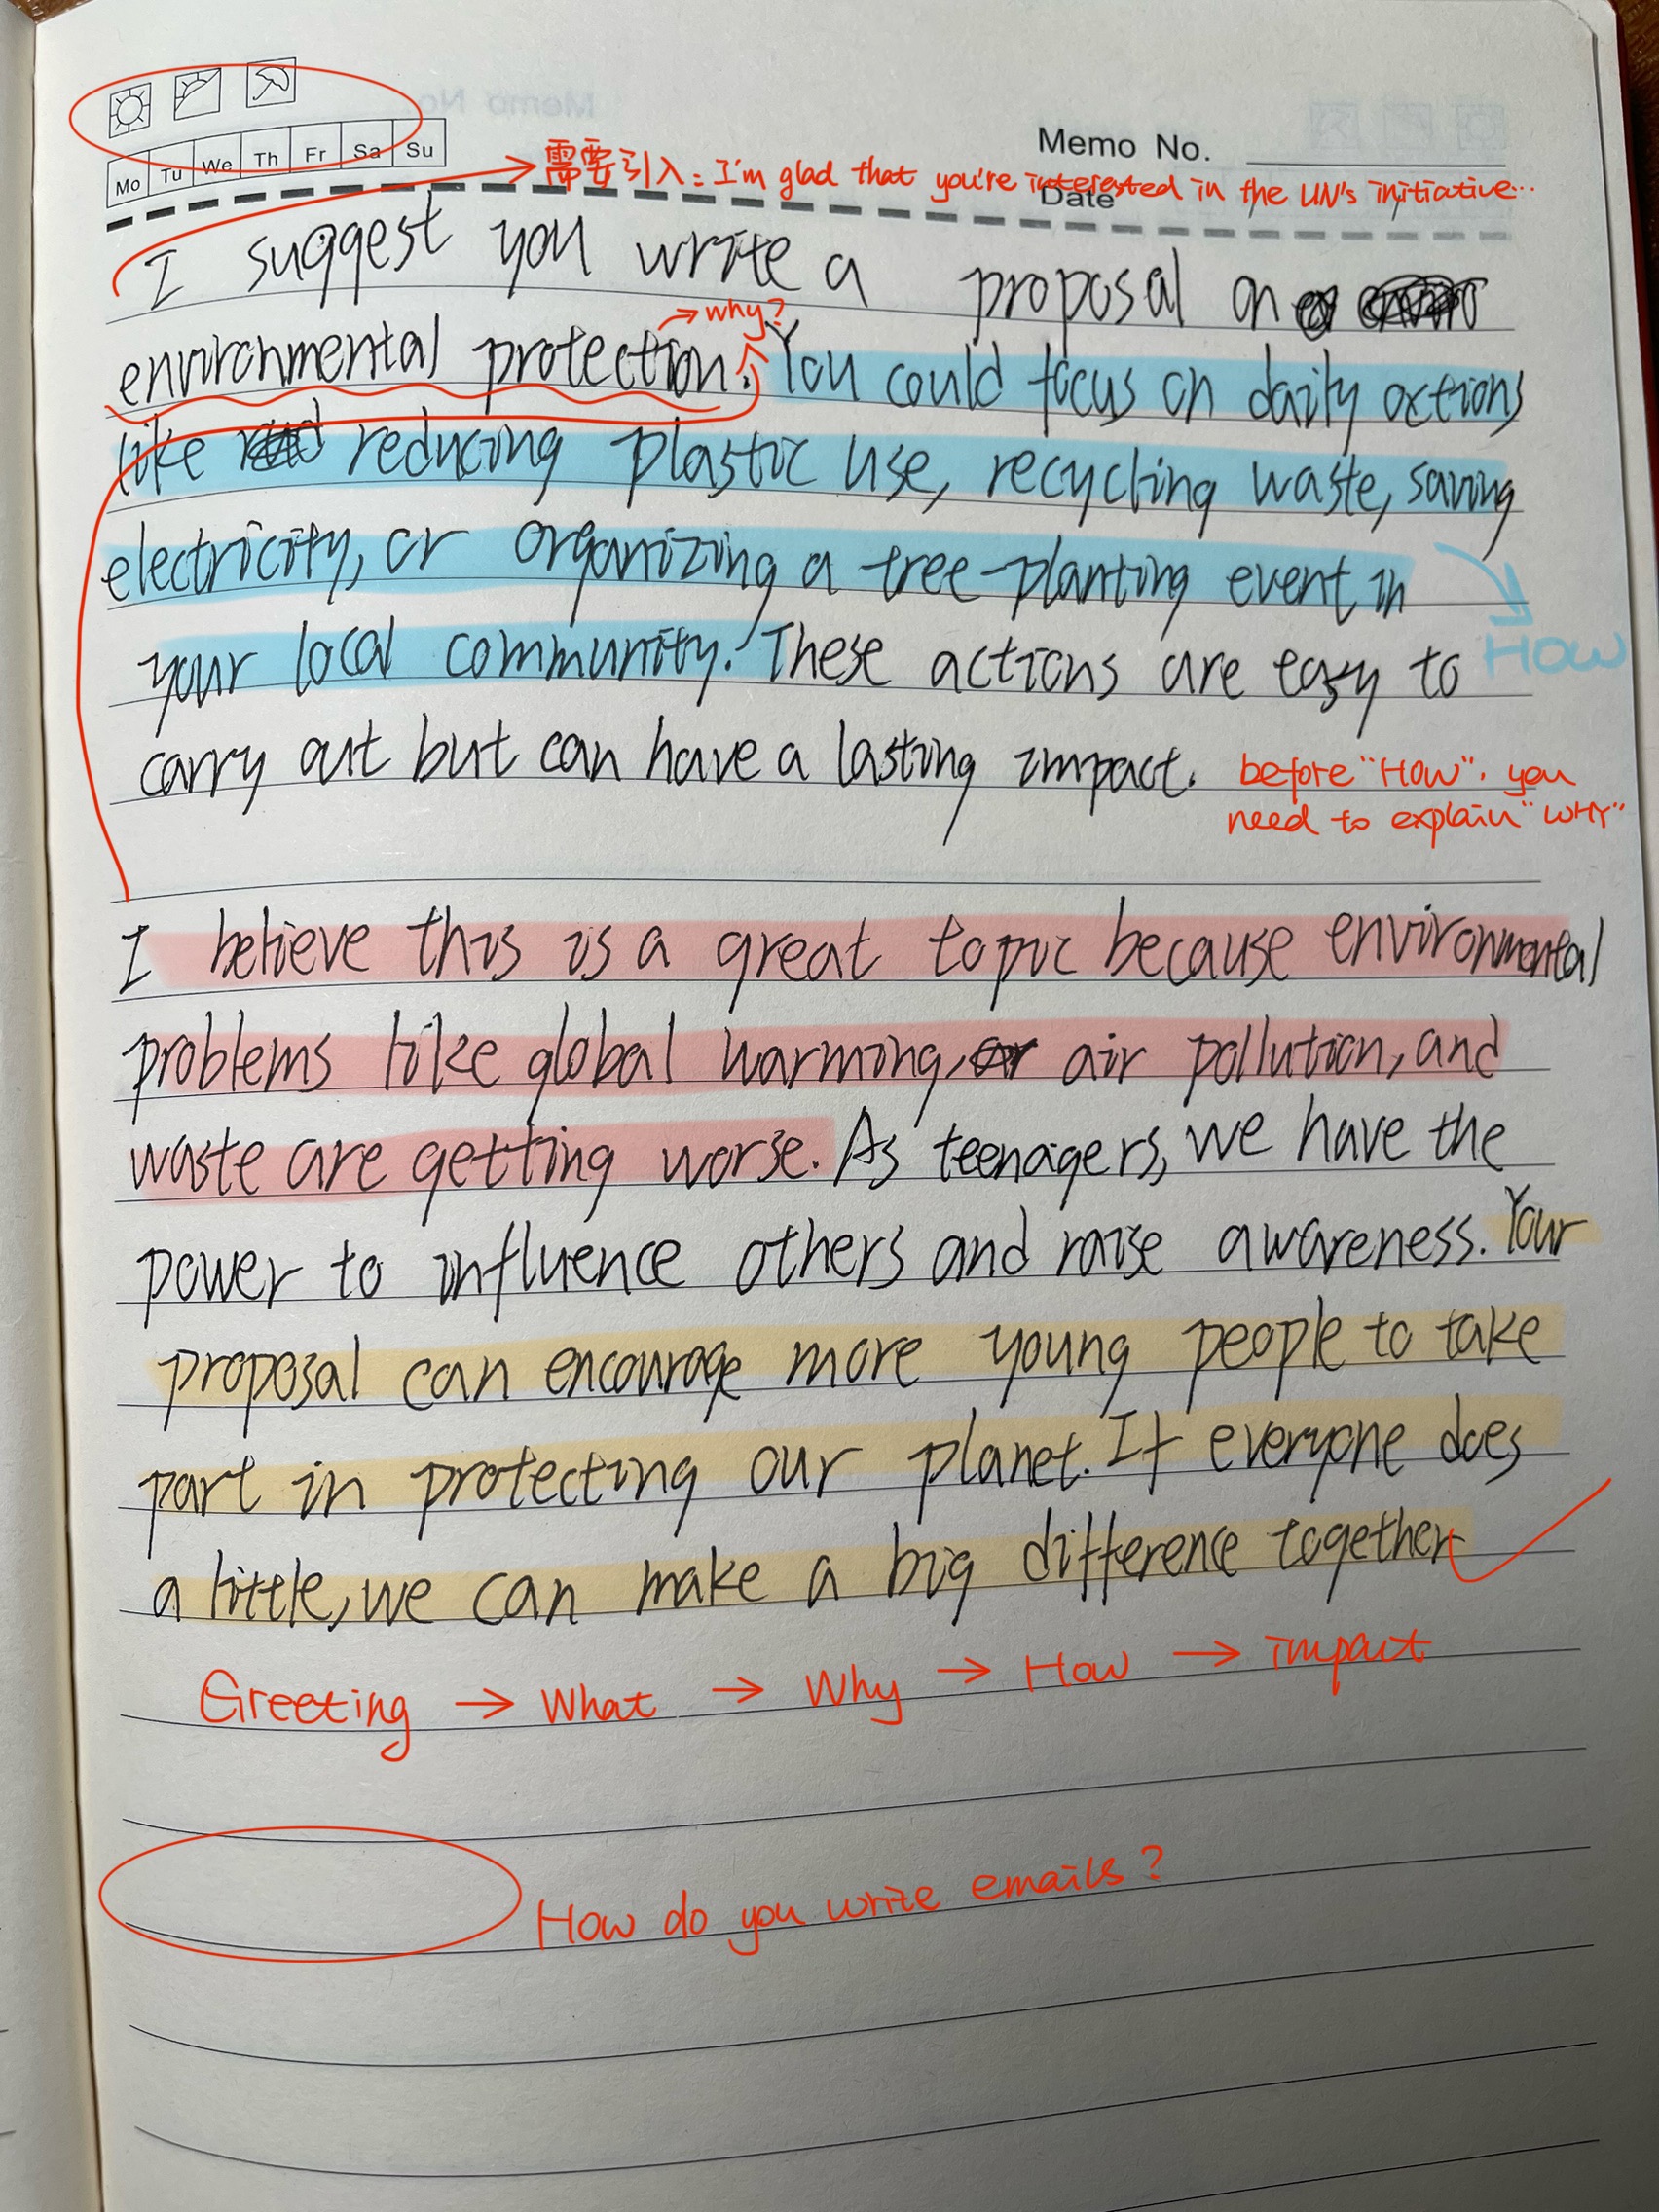 Mo Tu We Th Fr Sa Su
Memo No.
Date
需要引入: I'm glad that you're interested in the UN's initiative...
I suggest you write a proposal on
→ why?
environmental protection. You could focus on daily actions
like reducing plastic use, recycling waste, saving
electricity, or organizing a tree-planting event in
your local community. These actions are easy to
HOW
carry out but can have a lasting impact.
before "HOW", you
need to explain "WHY"
I believe this is a great topic because environmental
problems like global warming, air pollution, and
waste are getting worse. As teenagers, we have the
power to influence others and raise awareness. Your
proposal can encourage more young people to take
part in protecting our planet. If everyone does
a little, we can make a big difference together
Greeting → What → Why → How → impact
How do you write emails?